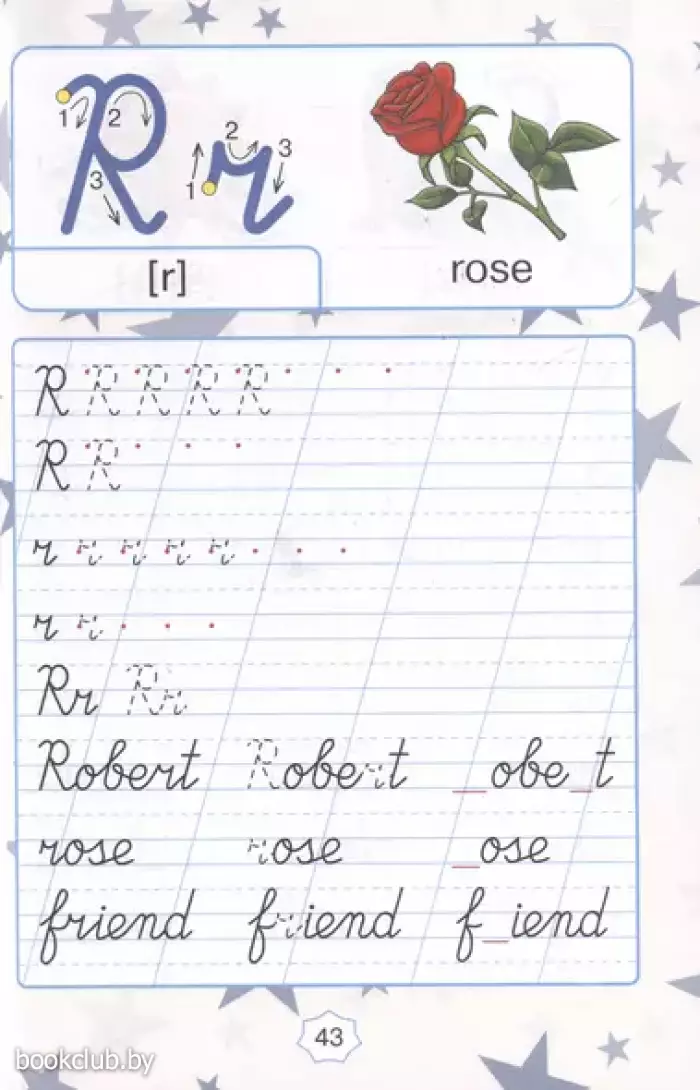 1 2 3 1 2 3
[r]
rose
R R R R R
R R
r r r r r
r r
Rr Rr
Robert Robert _obe_t
rose rose _ose
friend friend f_iend
43
bookclub.by